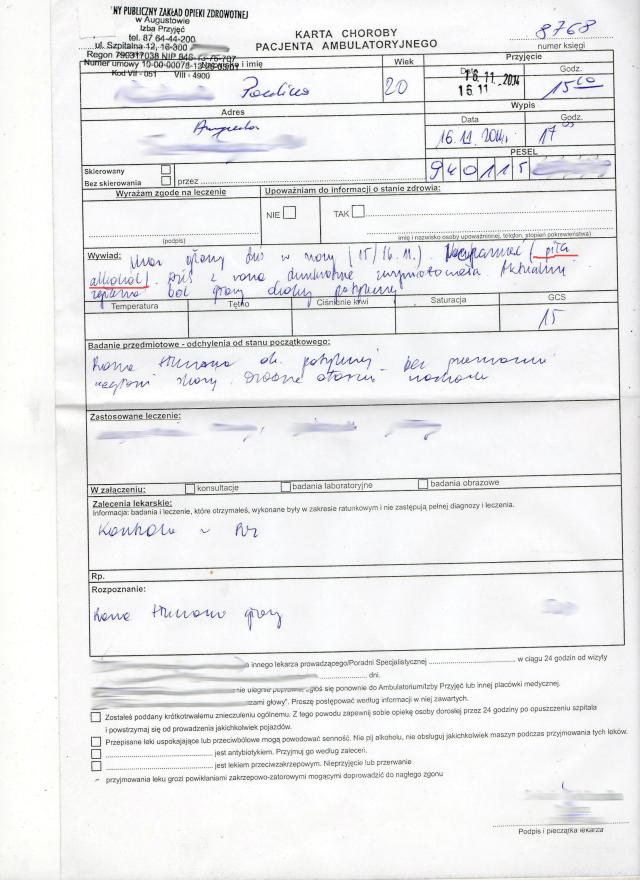 NY PUBLICZNY ZAKŁAD OPIEKI ZDROWOTNEJ
w Augustowie
Izba Przyjęć
tel. 87 64-44-200
ul. Szpitalna 12, 16-300
Regon 790317038 NIP 846-13-75-707
Numer umowy 10-00-00078-13-
Kod VII - 051 VIII - 4900
KARTA CHOROBY
PACJENTA AMBULATORYJNEGO
8768
numer księgi
i imię
Wiek
Przyjęcie
Data
Godz.
Paulina
20
16. 11. 2014
16. 11
15
Adres
Wypis
Augustów
Data
Godz.
16.11.2014r.
17
PESEL
940115
Skierowany
Bez skierowania
przez
Wyrażam zgodę na leczenie
Upoważniam do informacji o stanie zdrowia:
NIE
TAK
(podpis)
imię i nazwisko osoby upoważnionej, telefon, stopień pokrewieństwa)
Wywiad:
Uraz głowy dziś w nocy (15/16.11.). (piła
alkohol). Dziś z rana dwukrotnie wymiotowała. Aktualnie
zgłasza ból głowy okolicy potylicznej
Temperatura
Tętno
Ciśnienie krwi
Saturacja
GCS
15
Badanie przedmiotowe - odchylenia od stanu początkowego:
Rana tłuczona ok. potylicznej - bez przerwania
ciągłości skóry.
Zastosowane leczenie:
W załączeniu:
konsultacje
badania laboratoryjne
badania obrazowe
Zalecenia lekarskie:
Informacja: badania i leczenie, które otrzymałeś, wykonane były w zakresie ratunkowym i nie zastępują pełnej diagnozy i leczenia.
Kontrola w
Rp.
Rozpoznanie:
Rana tłuczona głowy
a innego lekarza prowadzącego/Poradni Specjalistycznej w ciągu 24 godzin od wizyty
dni.
nie ulegnie poprawie, zgłoś się ponownie do Ambulatorium/Izby Przyjęć lub innej placówki medycznej.
zami głowy". Proszę postępować według informacji w niej zawartych.
Zostałeś poddany krótkotrwałemu znieczuleniu ogólnemu. Z tego powodu zapewnij sobie opiekę osoby dorosłej przez 24 godziny po opuszczeniu szpitala
i powstrzymaj się od prowadzenia jakichkolwiek pojazdów.
Przepisane leki uspokajające lub przeciwbólowe mogą powodować senność. Nie pij alkoholu, nie obsługuj jakichkolwiek maszyn podczas przyjmowania tych leków.
jest antybiotykiem. Przyjmuj go według zaleceń.
jest lekiem przeciwzakrzepowym. Nieprzyjęcie lub przerwanie
przyjmowania leku grozi powikłaniami zakrzepowo-zatorowymi mogącymi doprowadzić do nagłego zgonu
Podpis i pieczątka lekarza